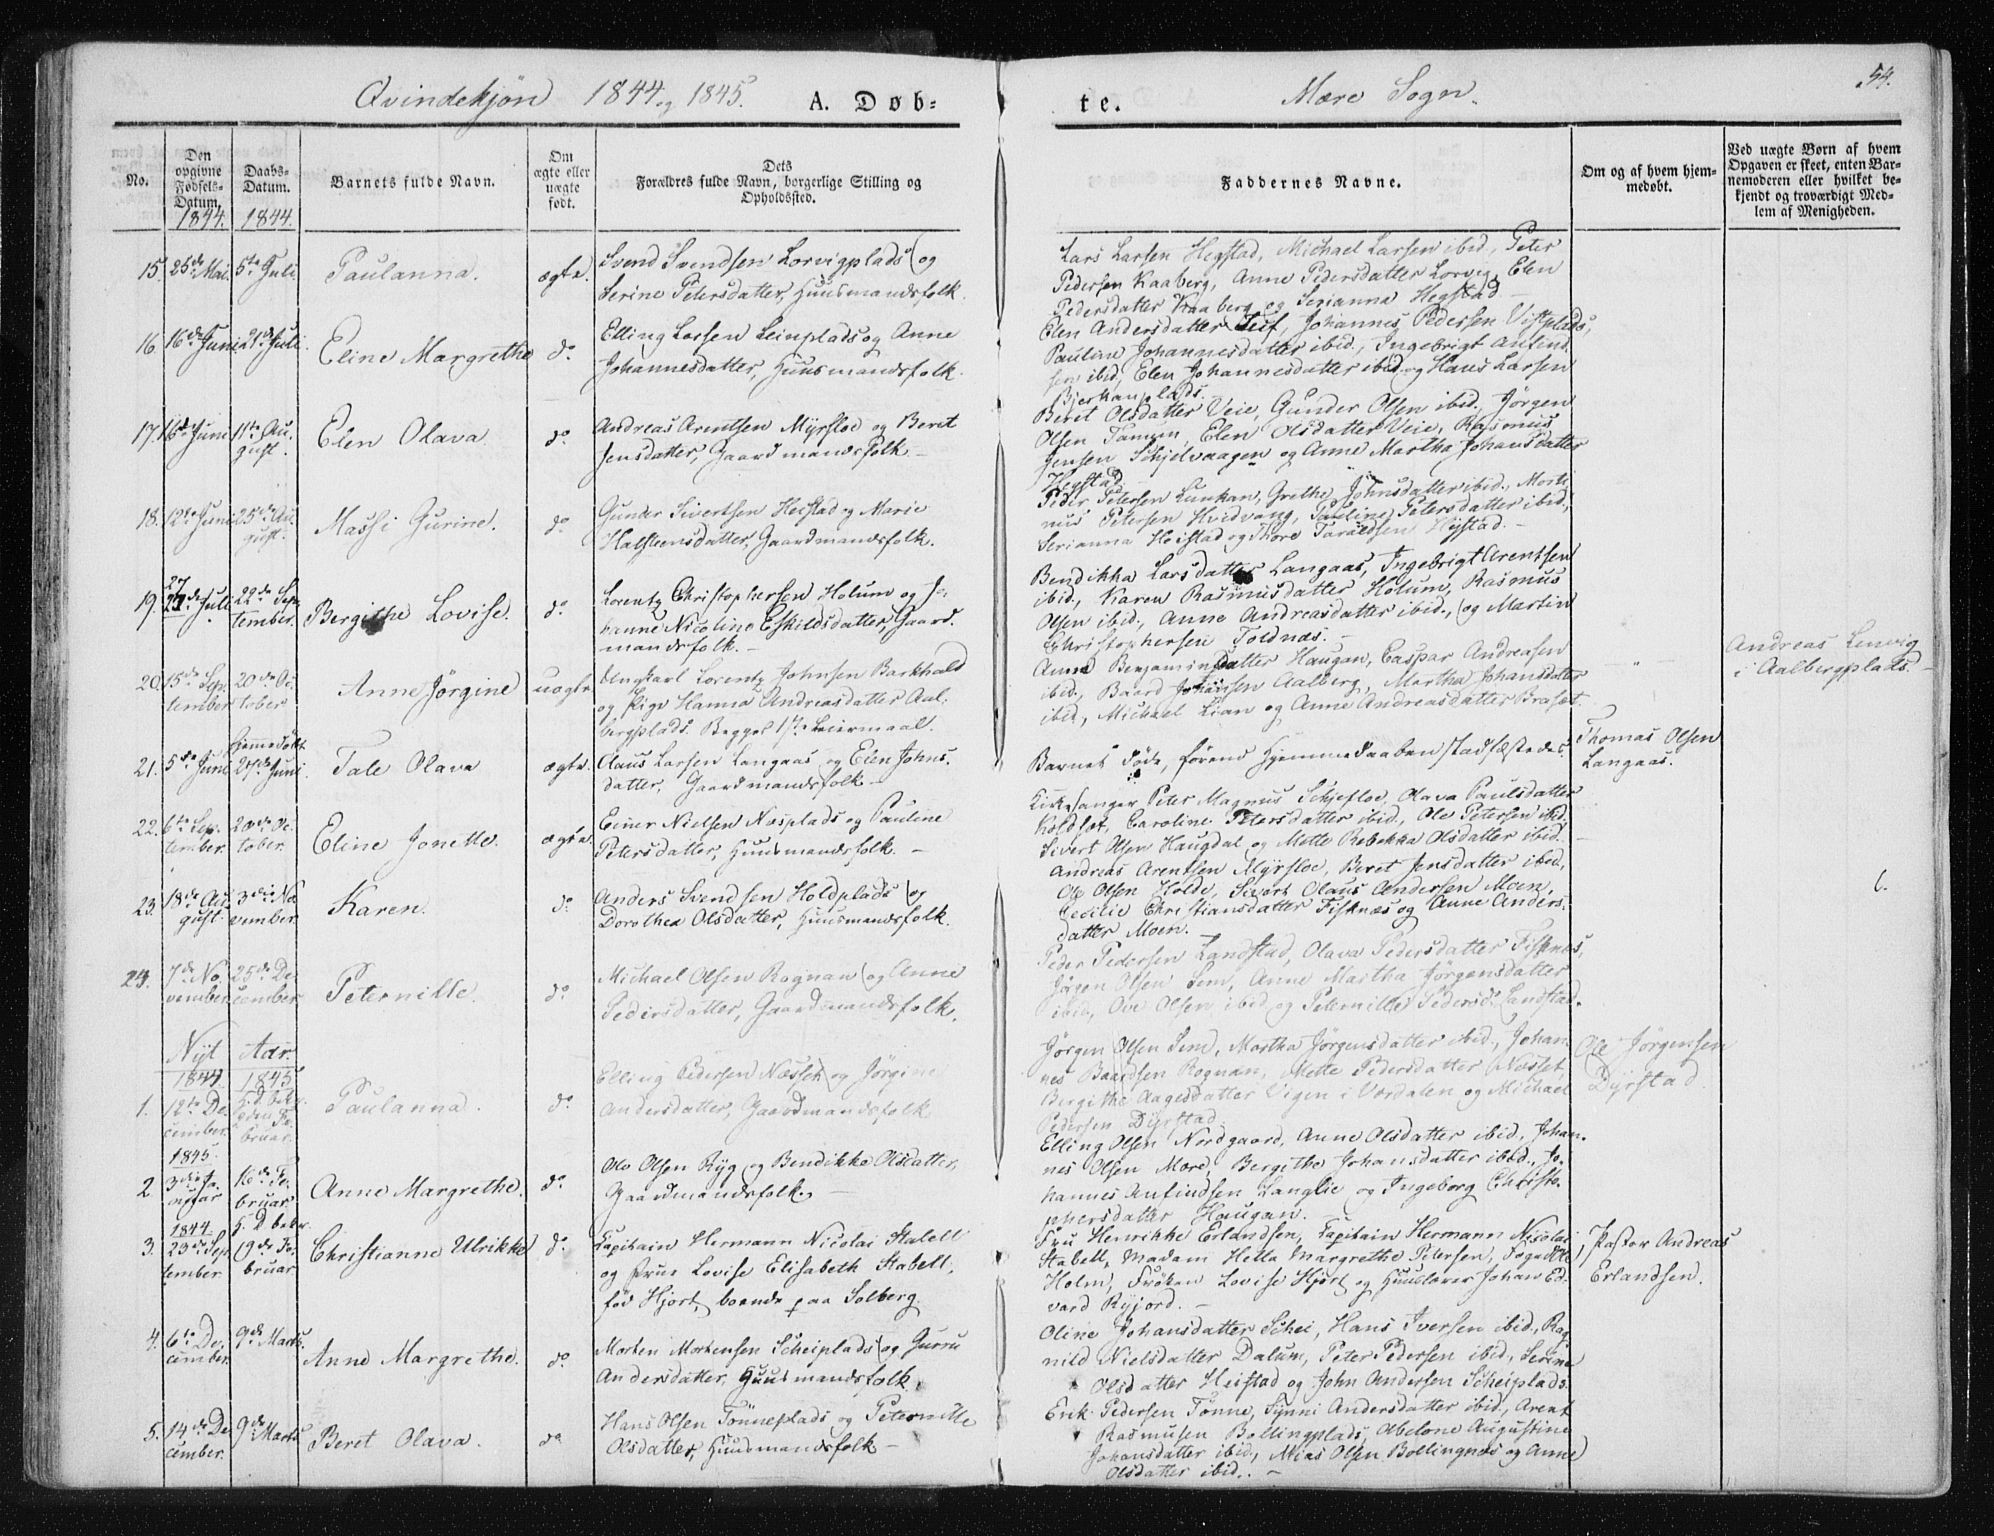 Qvindekjøn 1844 og 1845. A. Døb=
te. Mære Sogn. 54.
No.
Den opgivne Fødsels-Datum.
Daabs-Datum.
Barnets fulde Navn.
Om ægte eller uægte født.
Dets
Forældres fulde Navn, borgerlige Stilling og
Opholdssted.
Faddernes Navne.
Om og af hvem hjem-
medøbt.
Ved uægte Børn af hvem
Opgaven er skeet, enten Bar-
nemoderen eller hvilket be-
kjendt og troværdigt Med-
lem af Menigheden.
1844. 1844.
15. 25de Mai 5te Juli Paulanna. ægte.
Svend Svendsen Lorvigplads og
Serine Petersdatter, Huusmandsfolk.
Lars Larsen Hegstad, Michael Larsen ibid, Peter
Pedersen Kaaberg, Anne Pedersdatter Lorvig, Elen
Pedersdatter Kaaberg og Serianna Hegstad
16. 16de Juni 21de Juli Eline Margrethe do
Elling Larsen Leinplads og Anne
Johannesdatter, Huusmandsfolk.
Elen Andersdatter, Johannes Pedersen Vistplads,
Pauline Johannesdatter ibid., Ingebrigt
sen ibid, Elen Johannesdatter ibid og Hans Larsen
17. 16de Juni 11te Au-
gust. Elen Olava. do
Andreas Arentsen Myrsloe og Beret
Jensdatter, Gaardmandsfolk
Beret Olsdatter Veie, Gunder Olsen ibid, Jørgen
Olsen Tamun, Elen Olsdatter Veie, Rasmus
Jensen Schjelvaagen og Anne Martha Johansdatter
Hegstad.
18. 12te Juni 25de Au-
gust. Massi Gurine. do
Gunder Sivertsen Heistad og Marie
Halsteensdatter, Gaardmandsfolk.
Peder Petersen Lunhan, Grethe Johnsdatter ibid., Morte
nus Petersen Hvidvang, Pauline Petersdatter ibid,
Serianna Heistad og Thore Taraldsen
19. 27 Juli 22de Sep
tember. Bergithe Lovise. do
Lorentz Christophersen Holum og Jo-
hanne Nicoline Eskildsdatter, Gaard-
mandsfolk.
Bendikka Larsdatter Langaas, Ingebrigt Arentsen
ibid., Karen Rasmusdatter Holum, Rasmus
Olsen ibid., Anne Andreasdatter ibid., og Martin
Christophersen Foldnæs.
20. 15de Sep-
tember 20de Oc-
tober Anne Jørgine uægte
Ungkarl Lorentz Johnsen Barkhald
og Pige Hanna Andreasdatter Aal-
bergplads. Begges 1ste Leiermaal.
Anna Benjaminsdatter Haugan, Caspar Andreasen
ibid., Baard Johansen Aalberg, Martha Johansdatter
ibid, Michael Lian og Anne Andreasdatter Braset.
Andreas Lenvig
i Aalbergplads.
21. 5te Juni hjemmedøbt
27de Juni. Tale Olava ægte.
Claus Larsen Langaas og Elen Johns-
datter, Gaardmandsfolk
Barnet døde, førend Hjemmedaaben stadfæstedes.
Thomas Olsen
Langaas.
22. 6te Sep-
tember. 20de Oc-
tober. Eline Jonette. ægte.
Einer Nielsen Næsplads og Pauline
Petersdatter, Huusmandsfolk.
Kirkesanger Peter Magnus Schjefloe, Olava Paulsdatter
Caroline Petersdatter ibid, Ole Petersen ibid.
Sivert Olsen Haugdal og Mette Rebekka Olsdatter ibid.
23. 18de Au-
gust. 3die No-
vember. Karen. do
Anders Svendsen Holdplads og
Dorothea Olsdatter, Huusmandsfolk.
Andreas Arentsen Myrsloe, Beret Jensdatter ibid,
Ole Olsen Holde, Sivert Olaus Andersen Moen,
Cecilie Christiansdatter Fisknæs og Anne Anders-
datter Moen.
6.
24. 7de No-
vember 25de De-
cember. Peternille. do
Michael Olsen Rognan og Anne
Pedersdatter, Gaardmandsfolk.
Peder Pedersen Landstad, Olava Pedersdatter Fisknæs,
Jørgen Olsen Sem, Anne Martha Jørgensdatter
ibid, Ove Olsen ibid og Peternille Pedersd. Landstad.
Nyt Aar.
1844. 1845
1. 12te De-
cember.
bruar. Paulanna. do
Elling Pedersen Næsset og Jørgine
Andersdatter, Gaardmandsfolk
Jørgen Olsen Sem, Martha Jørgensdatter ibid., Johan-
nes Baardsen Rognan, Mette Pedersdatter Næsset,
Bergithe Aagesdatter Vigen i Værdalen og Michael
Pedersen Dyrstad.
Ole Jørgensen
Dyrstad.
1845.
2. 3die Ja-
nuar 16de Fe-
bruar. Anne Margrethe. do
Ole Olsen Ryg og Bendikke Olsdatter,
Gaardmandsfolk.
Elling Olsen Nordgaard, Anne Olsdatter ibid, Johan-
nes Olsen Mære, Bergithe Johansdatter ibid., Jo-
hannes Anfindsen Langlie og Ingeborg Christo-
phersdatter Haugan.
1844.
3. 23de Sep
tember 19de Fe-
bruar Christianne Ulrikke do
Capitain Hermann Nicolai Stabell
og Frue Lovise Elisabeth Stabell,
fød Hjort, boende paa Solberg
Fru Henrikke Erlandsen, Capitain Hermann Nicolai
Stabell, Madam Hella Margrethe Petersen, Foged
Holm, Frøken Lovise Hjort og Huuslærer Johan Ed-
vard Ryjord.
Pastor Andreas
Erlandsen.
4. 6te De-
cember. 9de Marts. Anne Margrethe. do
Morten Mortensen Scheiplads og Gurru
Andersdatter, Huusmandsfolk.
Oline Johansdatter Schei, Hans Iversen ibid., Rag-
nild Nielsdatter Dalum, Peter Pedersen ibid, Serine
Olsdatter Heistad og John Andersen Scheiplads.
5. 14de De-
cember. 9de Marts Beret Olava. do
Hans Olsen Tønneplads og Peternille
Olsdatter, Huusmandsfolk
Erik Pedersen Tønne, Synni Andersdatter ibid., Arent
Rasmusen Bollingplads, Abelone Augustine
Johansdatter ibid., Mias Olsen Bollingnæs og Anne
Olsdatter ibid..